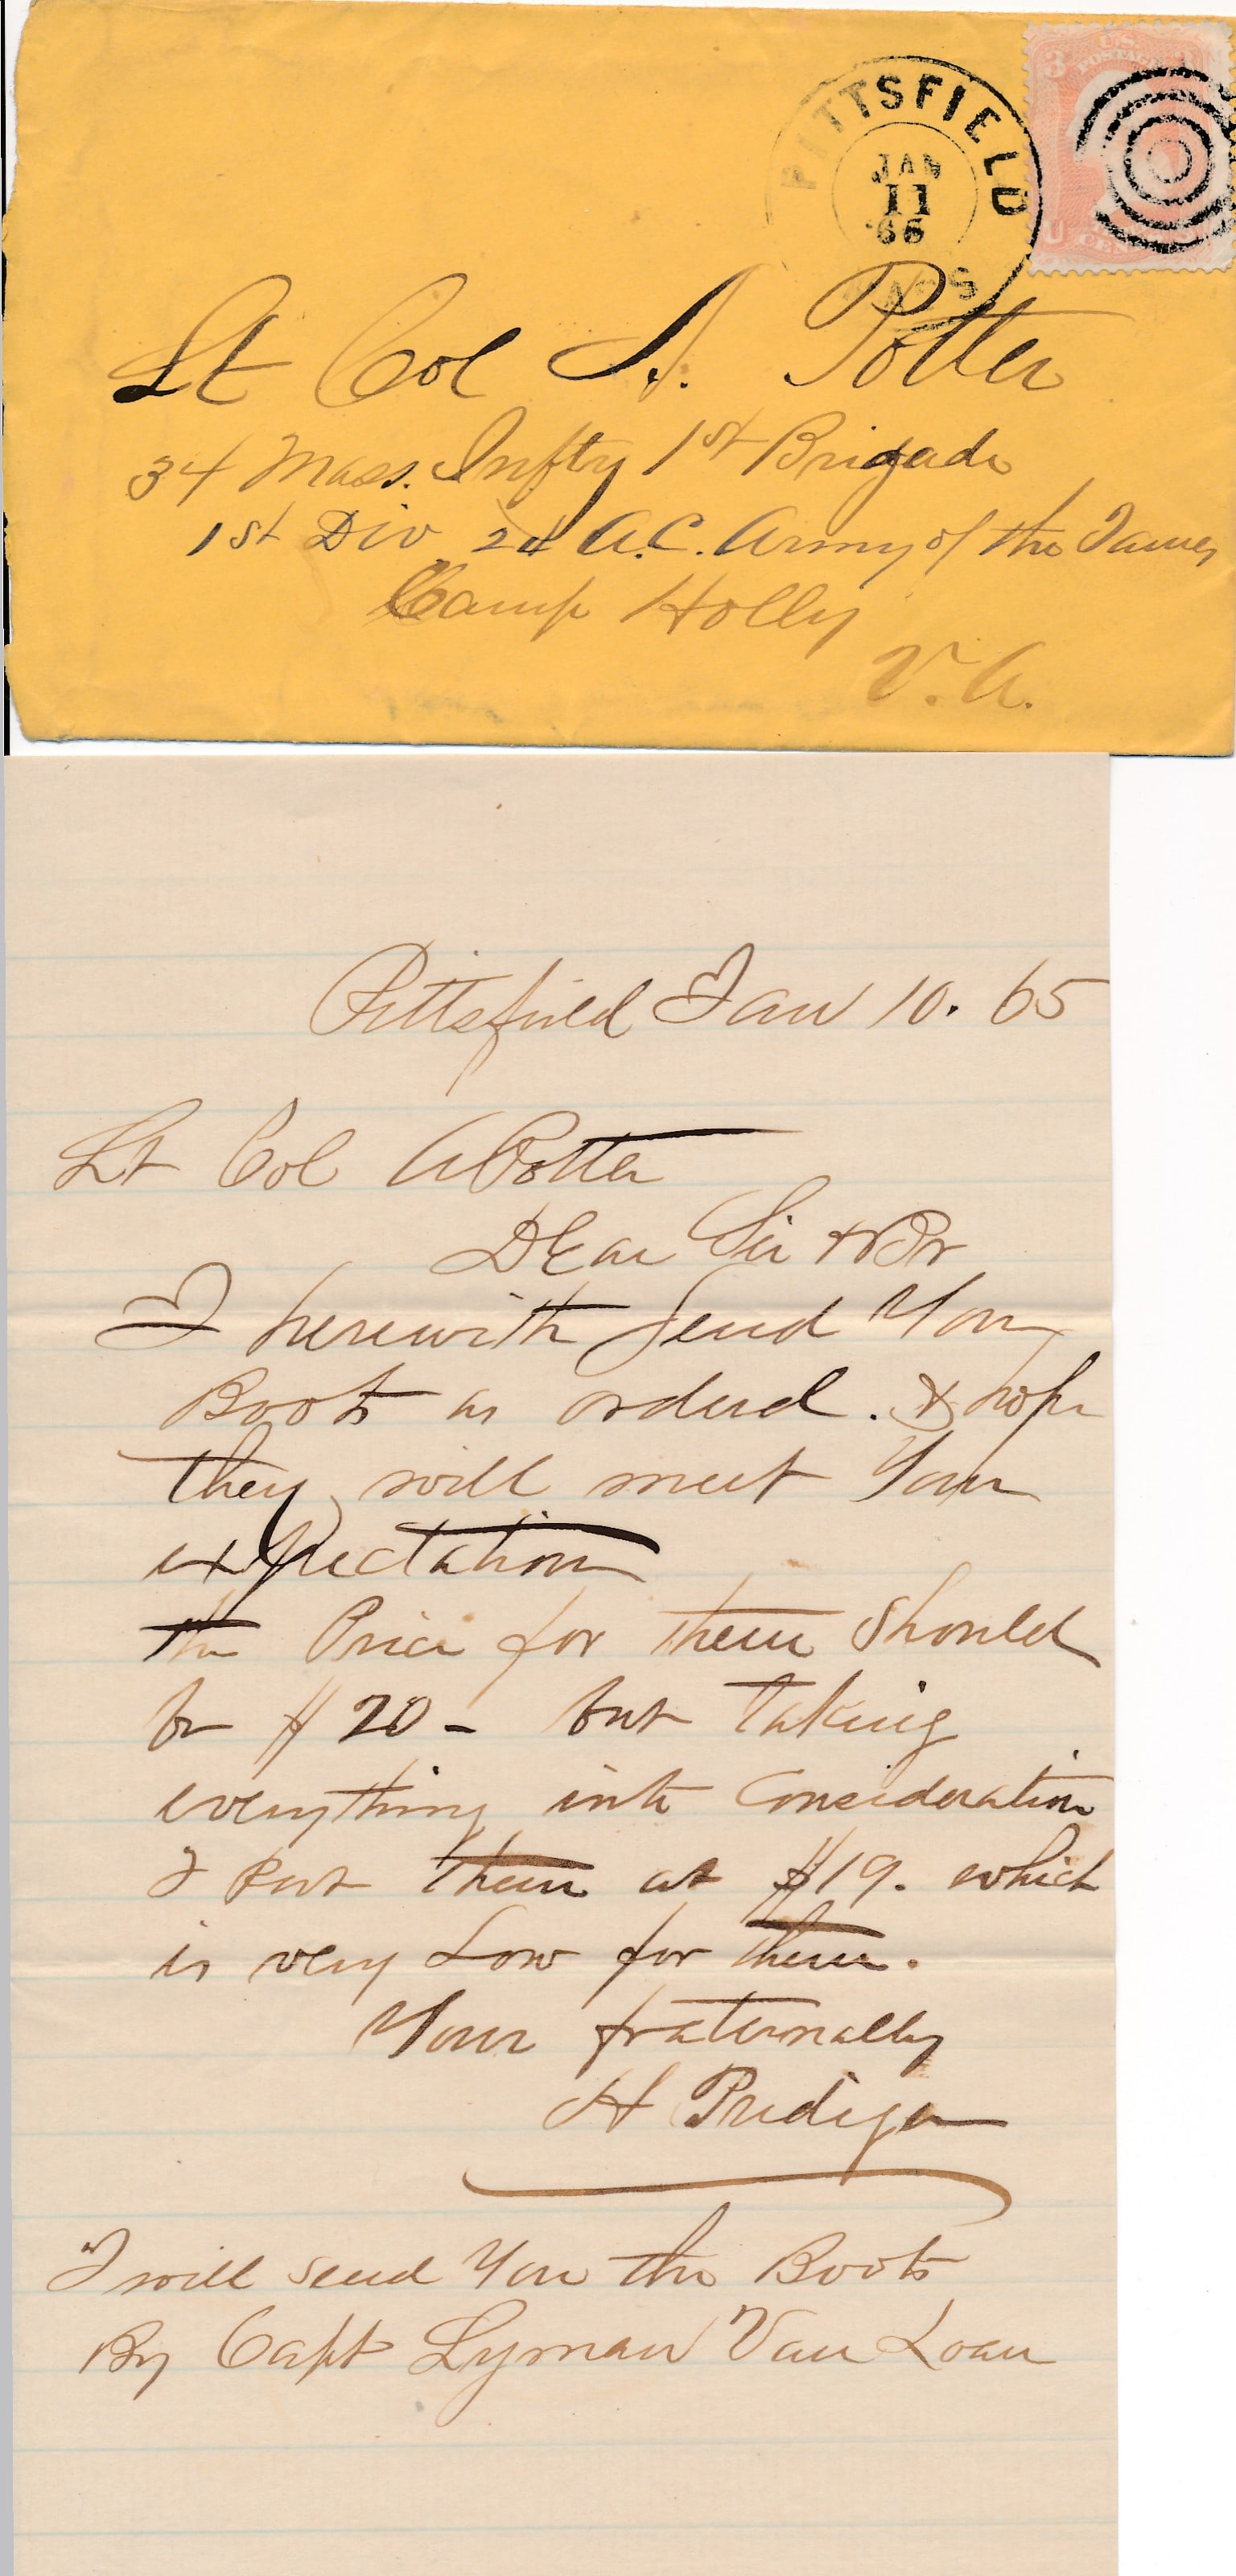 PITTSFIELD
JAN
11
'66
MAS
U.S. POSTAGE
3
U CEN
Lt Col A. Potter
34 Mass. Infty 1st Brigade
1st Div 24 A.C. Army of the James
Camp Holly
V.A.
Pittsfield Jan 10. 65
Lt Col A Potter
Dear Sir & Br
I herewith send You
Boots as ordered. & hope
they will meet Your
expectation
the Price for them should
be $20 - but taking
everything into Consideration
I Put them at $19. which
is very Low for them.
Your fraternally
H
I will send You the Boots
By Capt Lyman Van Loan